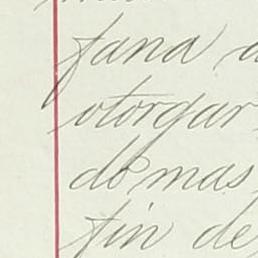 tana
otorgar
do mas
fin de